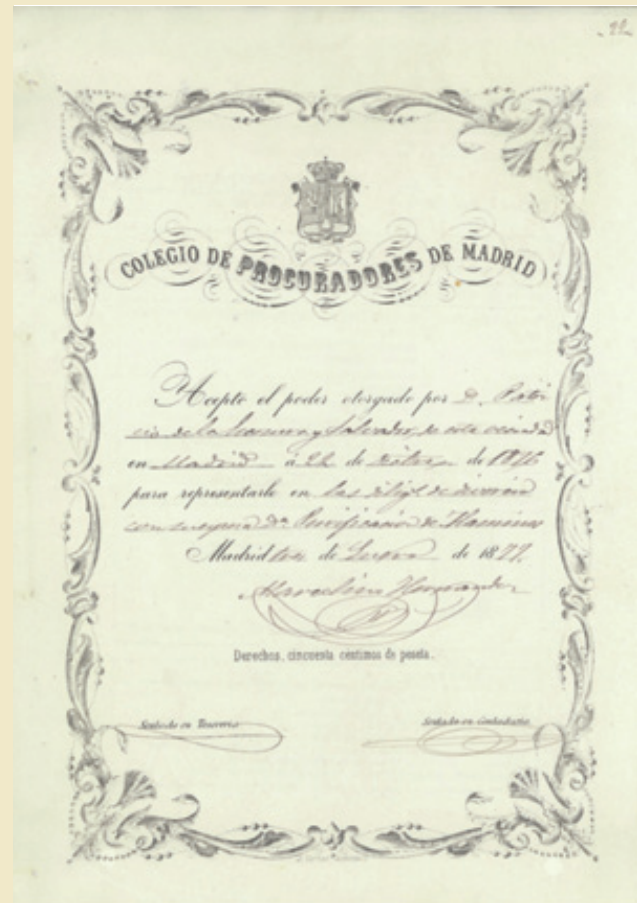 22
COLEGIO DE PROCURADORES DE MADRID
Acepto el poder otorgado por D. Patri
cio de la y Salvador, de esta vecindad
en Madrid á 22 de de 1876
para representarle en las dilig.s de divorcio
con su esposa D.a Purificacion de
Madrid tres de Enero de 1877.
Marcelino Hernandez
Derechos, cincuenta céntimos de peseta.
Sentado en Tesorería
Sentado en Contaduría